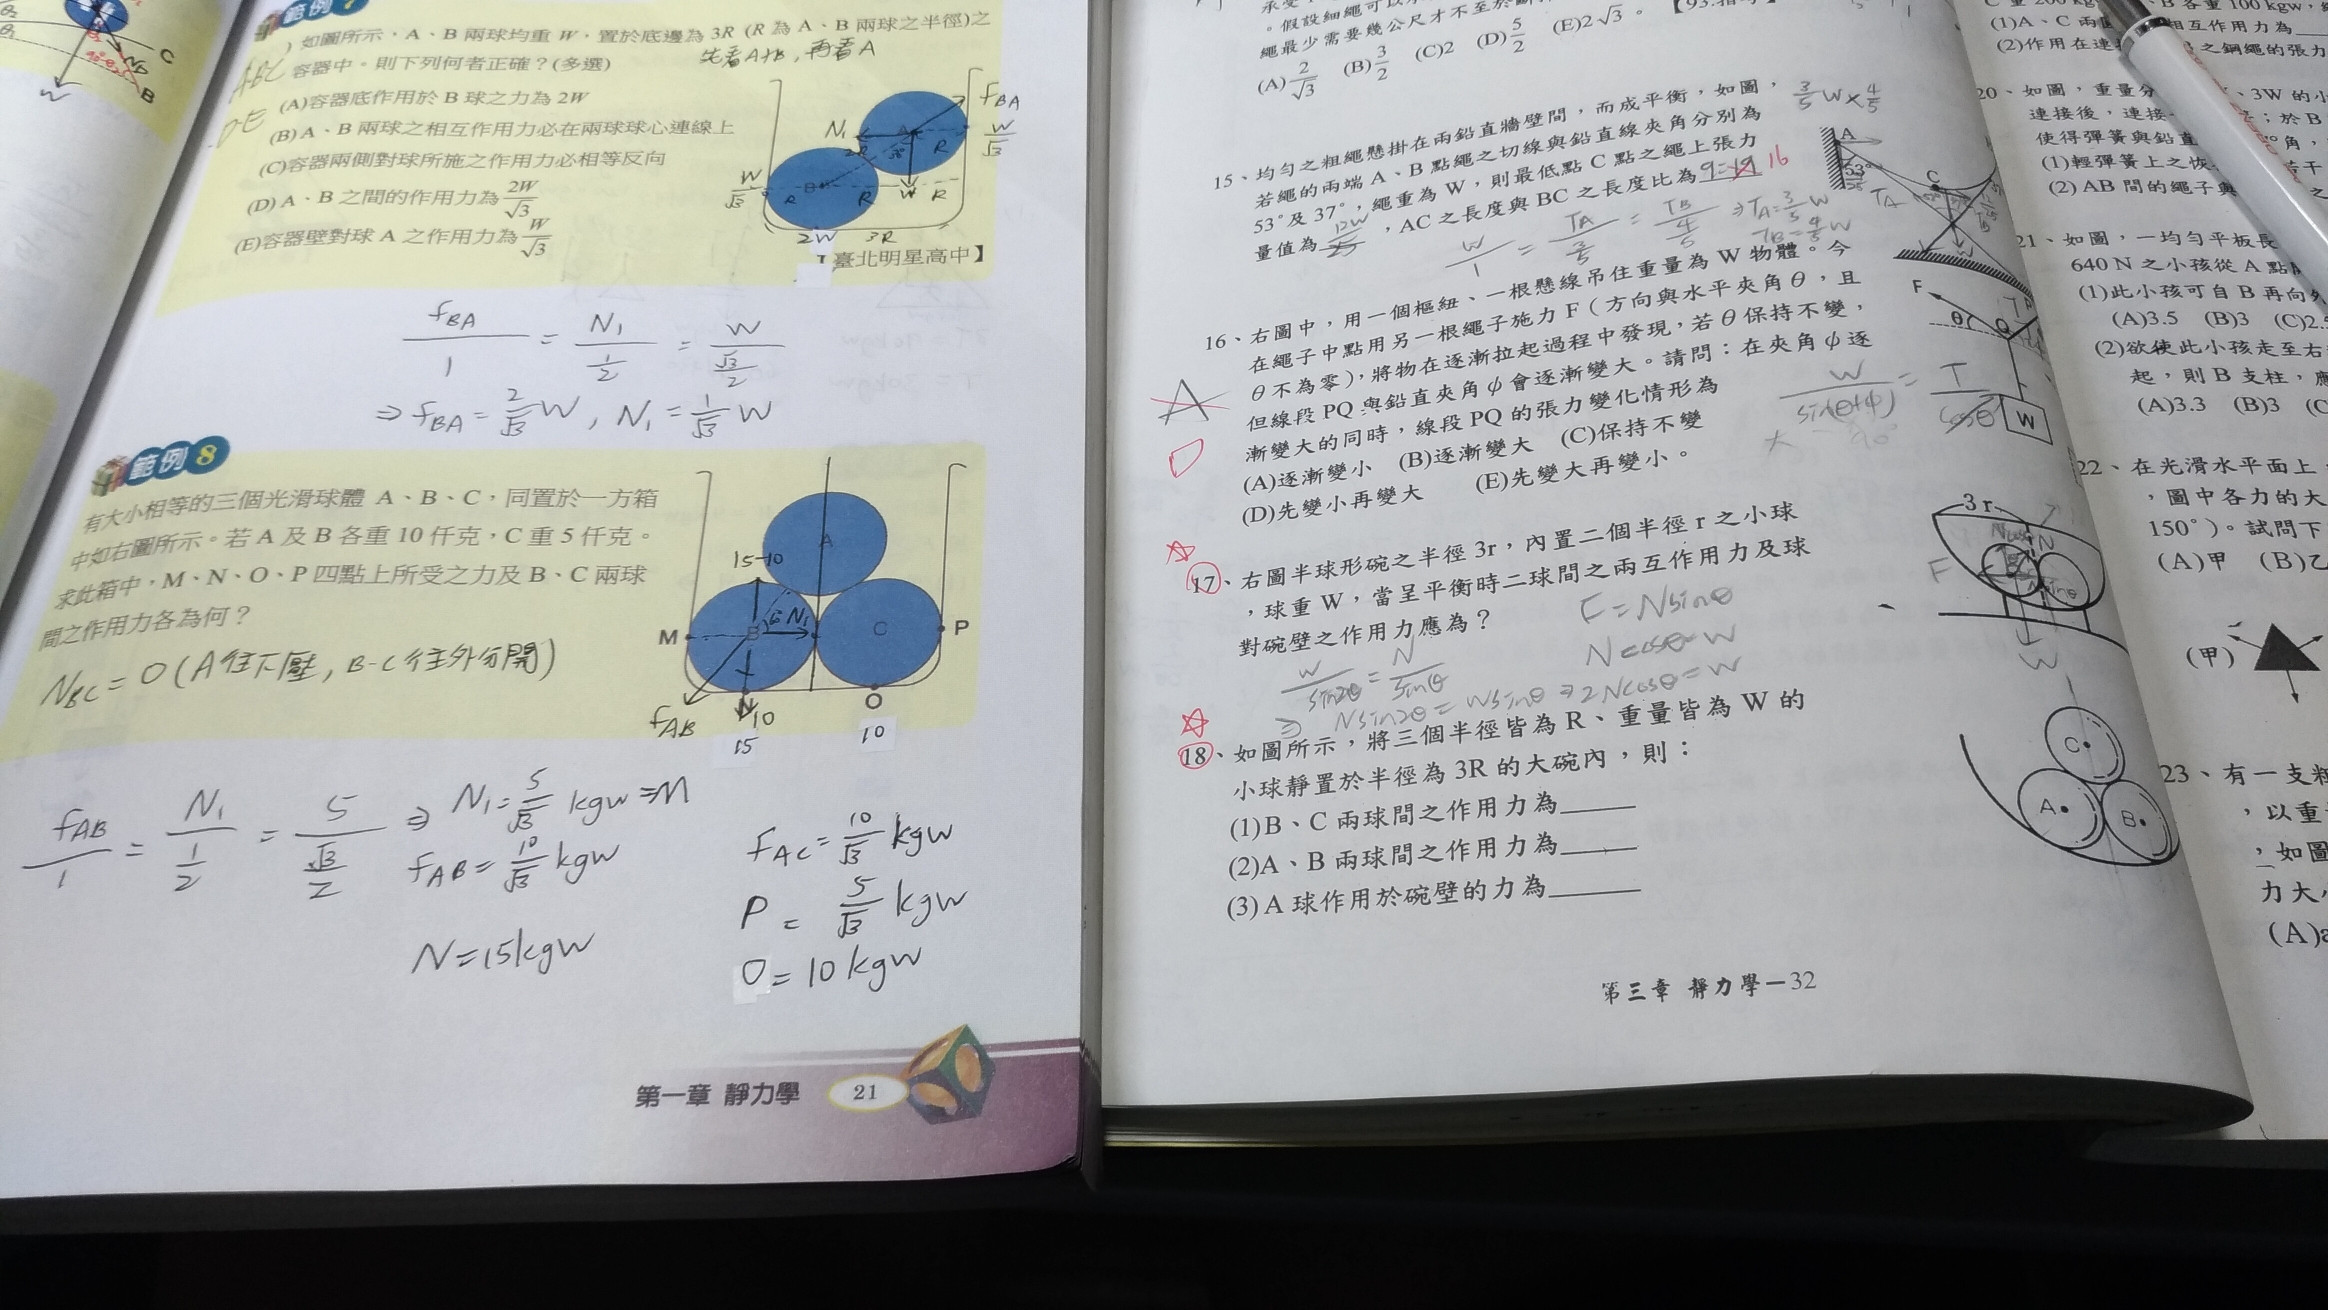 範例7
如圖所示，A、B 兩球均重 W，置於底邊為 3R (R 為 A、B 兩球之半徑)之
容器中。則下列何者正確？(多選)
先看A+B，再看A
ABC
DE
(A)容器底作用於 B 球之力為 2W
(B) A、B 兩球之相互作用力必在兩球球心連線上
(C)容器兩側對球所施之作用力必相等反向
(D) A、B 之間的作用力為 2W/√3
(E)容器壁對球 A 之作用力為 W/√3
N₁ A fBA
W/√3
2R 30° R
W/√3 B R R W R
2W 3R
臺北明星高中】
fBA/1 = N₁/(1/2) = W/(√3/2)
⇒ fBA = 2/√3 W , N₁ = 1/√3 W
範例8
有大小相等的三個光滑球體 A、B、C，同置於一方箱
中如右圖所示。若 A 及 B 各重 10 仟克，C 重 5 仟克。
求此箱中，M、N、O、P 四點上所受之力及 B、C 兩球
間之作用力各為何？
NBC = 0 (A往下壓, B-C往外分開)
A
15-10
M B N₁ C P
fAB N 10 O
15 10
fAB/1 = N₁/(1/2) = 5/(√3/2) ⇒ N₁ = 5/√3 kgw = M
fAB = 10/√3 kgw
N = 15kgw
fAC = 10/√3 kgw
P = 5/√3 kgw
O = 10 kgw
第一章 靜力學 21
繩最少需要幾公尺才不至於斷
(A) 2/√3 (B) 3/2 (C)2 (D) 5/2 (E)2√3。
15、均勻之粗繩懸掛在兩鉛直牆壁間，而成平衡，如圖，
若繩的兩端 A、B 點繩之切線與鉛直線夾角分別為
53°及 37°，繩重為 W，則最低點 C 點之繩上張力
量值為 12W/25，AC 之長度與 BC 之長度比為 9=16
3/5 W × 4/5
W/1 = TA/(3/5) = TB/(4/5) ⇒ TA = 3/5 W
TB = 4/5 W
A
53°
C
TA
16、右圖中，用一個樞紐、一根懸線吊住重量為 W 物體。今
在繩子中點用另一根繩子施力 F（方向與水平夾角 θ，且
θ 不為零），將物在逐漸拉起過程中發現，若 θ 保持不變，
但線段 PQ 與鉛直夾角 ψ 會逐漸變大。請問：在夾角 ψ 逐
漸變大的同時，線段 PQ 的張力變化情形為
(A)逐漸變小 (B)逐漸變大 (C)保持不變
(D)先變小再變大 (E)先變大再變小。
F θ Q P
W
W/sin(θ+ψ) = T/cosθ
17、右圖半球形碗之半徑 3r，內置二個半徑 r 之小球
，球重 W，當呈平衡時二球間之兩互作用力及球
對碗壁之作用力應為？
F = Nsinθ
Ncosθ = W
W/sin2θ = N/sinθ
⇒ Nsin2θ = Wsinθ ⇒ 2Ncosθ = W
3 r
F N W
18、如圖所示，將三個半徑皆為 R、重量皆為 W 的
小球靜置於半徑為 3R 的大碗內，則：
(1)B、C 兩球間之作用力為
(2)A、B 兩球間之作用力為
(3)A 球作用於碗壁的力為
C
A B
第三章 靜力學－32
(1)A、C 兩
相互作用力為
(2)作用在連
之鋼繩的張力
20、如圖，重量分
、3W 的小
連接後，連接
；於 B
使得彈簧與鉛直
角，
(1)輕彈簧上之恢
若干
(2) AB 間的繩子與
21、如圖，一均勻平板長
640 N 之小孩從 A 點
(1)此小孩可自 B 再向
(A)3.5 (B)3 (C)2.
(2)欲使此小孩走至右
起，則 B 支柱，應
(A)3.3 (B)3 (C
22、在光滑水平面上
，圖中各力的大
150°)。試問下
(A)甲 (B)乙
(甲)
23、有一支
，以重
，如圖
力大
(A)